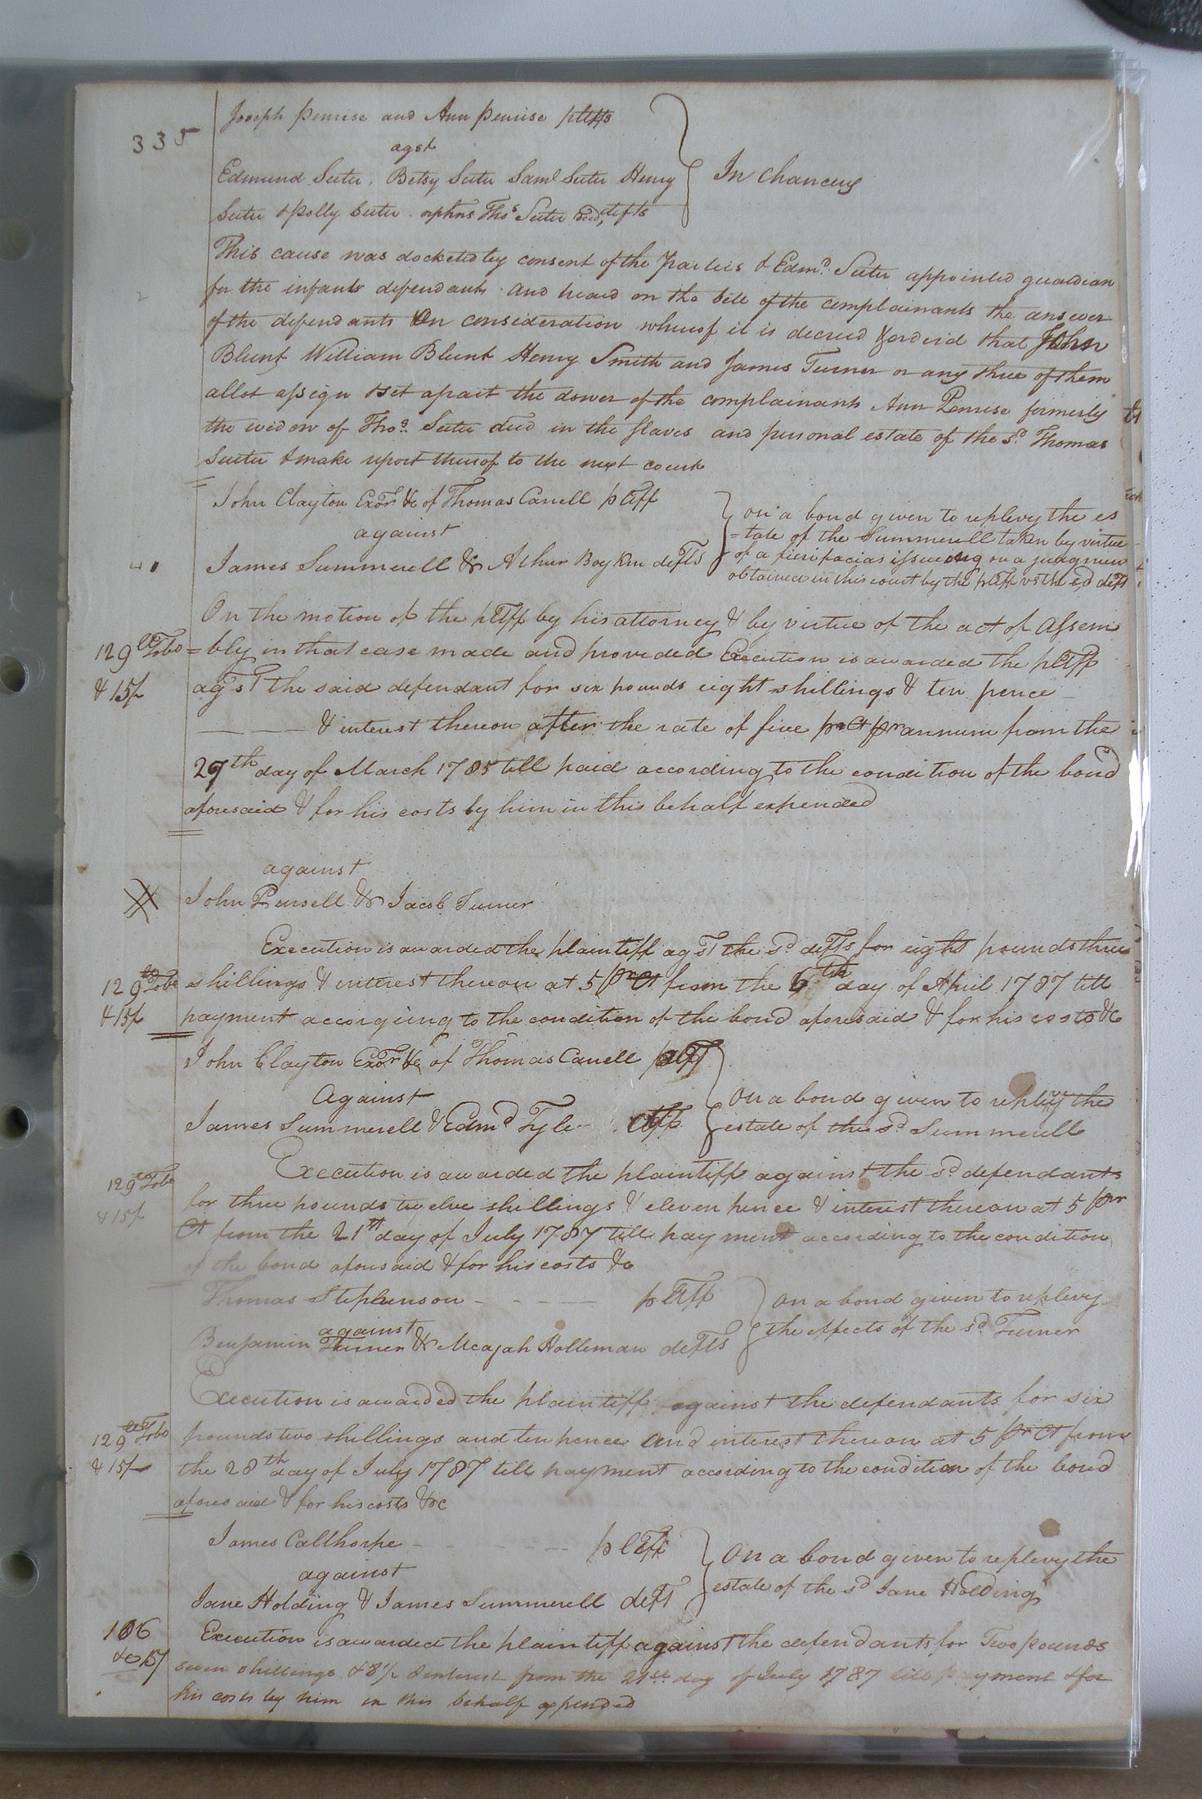 335
Joseph Penrise and Ann Penrise pltffs
agst
Edmund Suter, Betsy Suter Saml Suter Henry
Suter & Polly Suter orphns Thos Suter decd, defts
In chancery
This cause was docketed by consent of the Parties & Edmd. Suter appointed guardian
for the infants defendants and heard on the bill of the complainants the answer
of the defendants On consideration whereof it is decreed & ordered that John
Blunt William Blunt Henry Smith and James Turner or any three of them
allot assign & set apart the dower of the complainants Ann Penrise formerly
the widow of Thos. Suter decd in the slaves and personal estate of the sd. Thomas
Suter & make report thereof to the next court
John Clayton Exor. &c of Thomas Carrell pltff
against
James Summerell & Athur Boykin defts
on a bond given to replevy the es
=tate of the Summerell taken by virtue
of a fieri facias issueing on a judgmen
obtained in this court by the pltff vs the sd defts
On the motion of the pltff by his attorney & by virtue of the act of Assem
129 lb Tobo
& 15/
=bly in that case made and provided Execution is awarded the pltff
agst the said defendant for six pounds eight shillings & ten pence
& interest thereon after the rate of five pr Ct pr annum from the
29th day of March 1785 till paid according to the condition of the bond
aforesaid & for his costs by him in this behalf expended
against
John Pursell & Jacob Turner
Execution is awarded the plaintiff agst the sd defts for eight pounds three
129 lb Tobo
& 15/
shillings & interest thereon at 5 pr Ct from the 6th day of April 1787 till
payment accorging to the condition of the bond aforesaid & for his costs &c
John Clayton Exor &c of Thomas Carrell pltff
Against
James Summerell & Edmd Tyler dfts
on a bond given to replevy the
estate of the sd Summerell
Execution is awarded the plaintiff against the sd defendants
129 lb Tobo
& 15/
for three pounds twelve shillings & eleven pence & interest thereon at 5 pr
Ct from the 21st day of July 1787 till payment according to the condition
of the bond aforesaid & for his costs &c
Thomas Stephenson - - - - - pltff
against
Benjamin Turner & Micajah Holleman defts
on a bond given to replevy
the effects of the sd Turner
Execution is awarded the plaintiff against the defendants for six
129 lb Tobo
& 15/
pounds two shillings and ten pence and interest thereon at 5 pr Ct from
the 28th day of July 1787 till payment according to the condition of the bond
aforesaid & for his costs &c
James Calthorpe - - - - - pltff
against
Jane Holding & James Summerell defts
on a bond given to replevy the
estate of the sd Jane Holding
106
& 15/
Execution is awarded the plaintiff against the defendants for Two pounds
seven shillings & 8/2 & interest from the 21st day of July 1787 till payment & for
his costs by him in this behalf expended